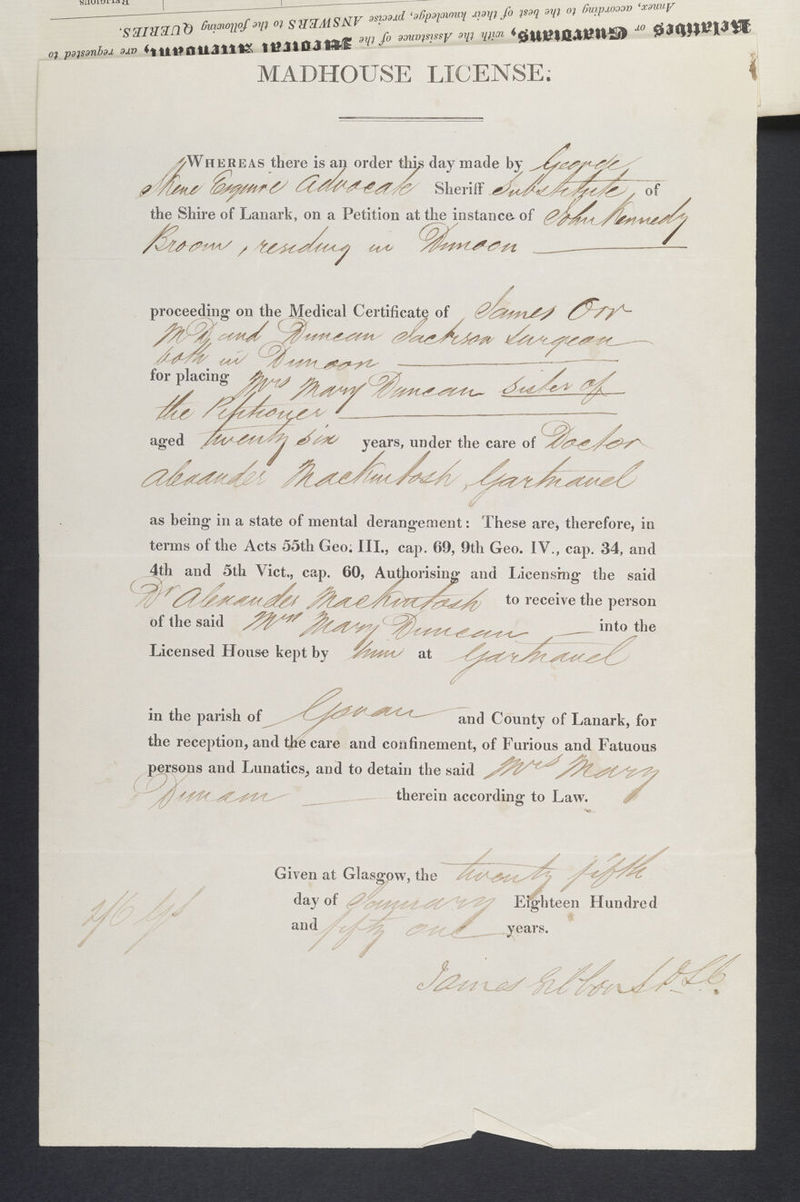 Annex, according to the best of their knowledge, precise ANSWERS to the following QUERIES.
Relatives or Guardians, with the assistance of the Medical Attendant, are requested to
MADHOUSE LICENSE.
WHEREAS there is an order this day made by George
Skene Esquire Advocate Sheriff Substitute, of
the Shire of Lanark, on a Petition at the instance of John Kennedy
Broom, residing in Dunoon
proceeding on the Medical Certificate of James Orr
M.D. and Duncan Jackson Surgeon
both in Dunoon
for placing Mrs Mary Duncan Sister of
the Petitioner
aged twenty six years, under the care of Doctor
Alexander Mackintosh, Gartnavel
as being in a state of mental derangement: These are, therefore, in
terms of the Acts 55th Geo. III., cap. 69, 9th Geo. IV., cap. 34, and
4th and 5th Vict., cap. 60, Authorising and Licensing the said
Dr Alexander Mackintosh to receive the person
of the said Mrs Mary Duncan into the
Licensed House kept by him at Gartnavel
in the parish of Govan and County of Lanark, for
the reception, and the care and confinement, of Furious and Fatuous
persons and Lunatics, and to detain the said Mrs Mary
Duncan therein according to Law.
Given at Glasgow, the twenty fifth
day of January Eighteen Hundred
and fifty one years.
2/6
James